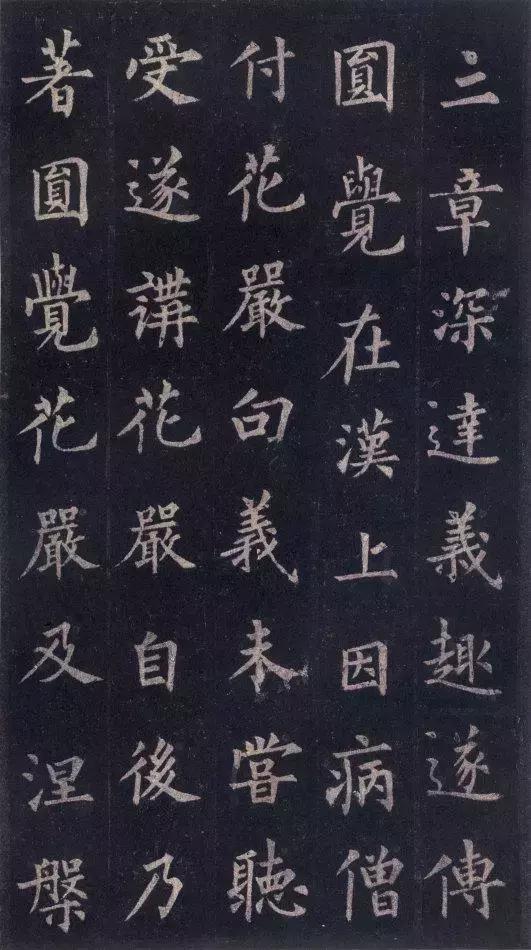 二章深達義趣遂傳
圎覺在漢上因病僧
付花嚴句義未嘗聽
受遂講花嚴自後乃
著圎覺花嚴及涅槃